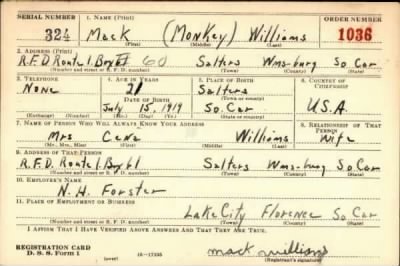 SERIAL NUMBER 1. NAME (Print) ORDER NUMBER
324 Mack (Monkey) Williams 1036
(First) (Middle) (Last)
2. ADDRESS (Print)
R.F.D. Route 1. Box 60 Salters Wmsburg So Car
(Number and street or R. F. D. number) (Town) (County) (State)
3. TELEPHONE 4. AGE IN YEARS 5. PLACE OF BIRTH 6. COUNTRY OF CITIZENSHIP
None 21 Salters
DATE OF BIRTH (Town or county)
July 15, 1919 So. Car U.S.A.
(Exchange) (Number) (Mo.) (Day) (Yr.) (State or country)
7. NAME OF PERSON WHO WILL ALWAYS KNOW YOUR ADDRESS 8. RELATIONSHIP OF THAT PERSON
Mrs Williams Wife
(Mr., Mrs., Miss) (First) (Middle) (Last)
9. ADDRESS OF THAT PERSON
R.F.D. Route 1. Box 61 Salters Wmsburg So Car
(Number and street or R. F. D. number) (Town) (County) (State)
10. EMPLOYER'S NAME
N. H. Forster
11. PLACE OF EMPLOYMENT OR BUSINESS
Lake City Florence So Car
(Number and street or R. F. D. number) (Town) (County) (State)
I AFFIRM THAT I HAVE VERIFIED ABOVE ANSWERS AND THAT THEY ARE TRUE.
REGISTRATION CARD mack williams
D. S. S. Form 1 (over) 16-17105 (Registrant's signature)